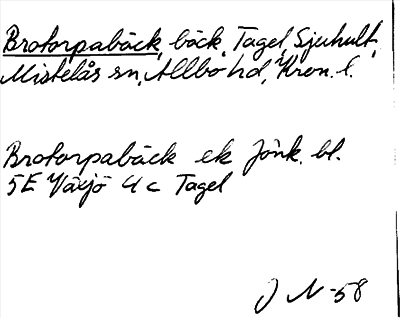 Brotorpabäck, bäck, Tagel, Sjuhult,
Mistelås sn, Allbo hd, Kron. l.
Brotorpabäck ek Jönk. bl.
5E Växjö 4 c Tagel
J N -58